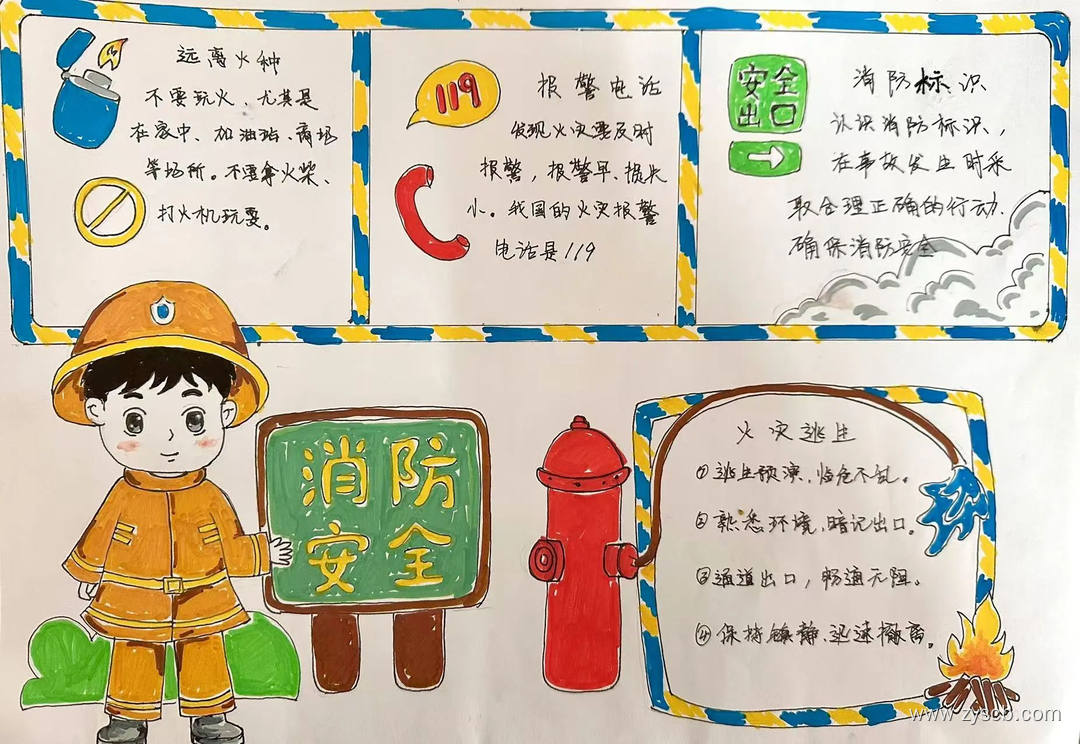 远离火种
不要玩火、尤其是
在家中、加油站、商场
等场所。不要拿火柴、
打火机玩耍。
119
报警电话
发现火灾要及时
报警，报警早、损失
小。我国的火灾报警
电话是119
安全
出口
消防标识
认识消防标识，
在事故发生时采
取合理正确的行动.
确保消防安全
消防
安全
火灾逃生
①逃生预演，临危不乱。
②熟悉环境，暗记出口。
③通道出口，畅通无阻。
④保持镇静、迅速撤离。
www.zyscb.com